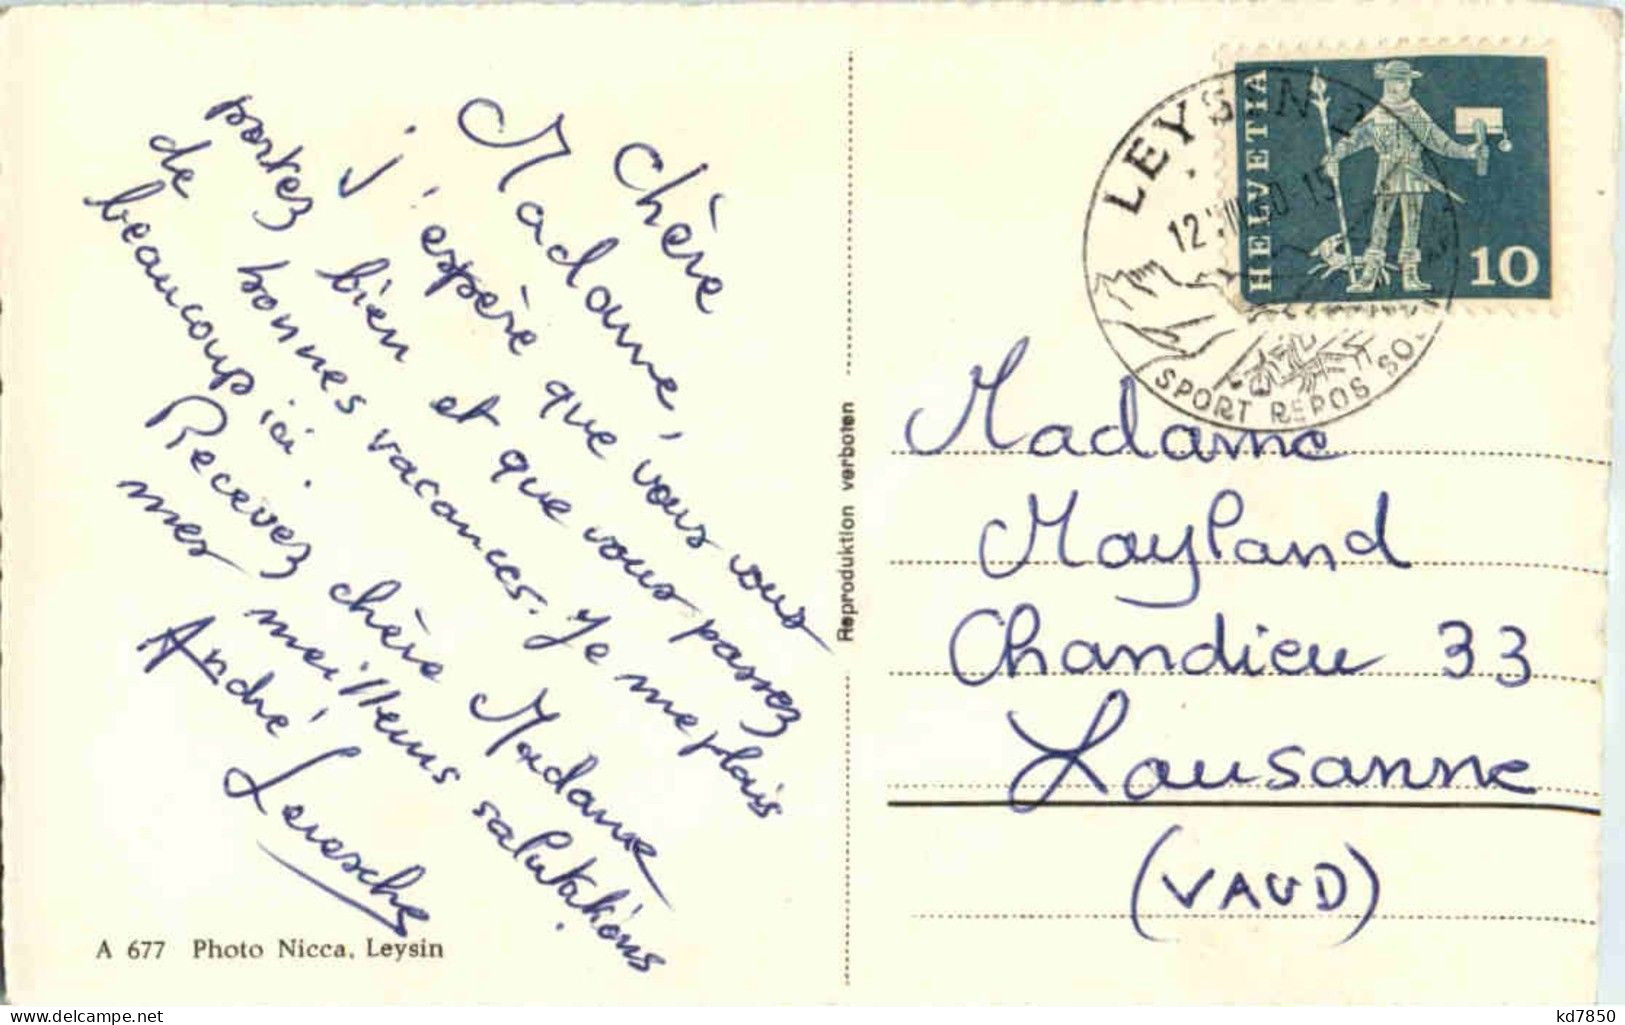 Chère
Madame,
j'espère que vous vous
portez bien et que vous passez
de bonnes vacances. Je me plais
beaucoup ici.
Recevez chère Madame
mes meilleurs salutations
André
A 677 Photo Nicca, Leysin
Reproduktion verboten
LEYSIN
SPORT REPOS
HELVETIA
10
Madame
Mayland
Chandieu 33
Lausanne
(VAUD)
www.delcampe.net
kd7850